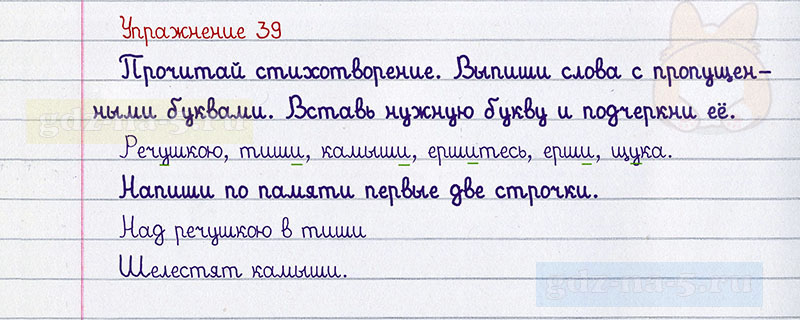 Упражнение 39
Прочитай стихотворение. Выпиши слова с пропущен-
ными буквами. Вставь нужную букву и подчеркни её.
Речушкою, тиши, камыши, ершитесь, ерши, щука.
Напиши по памяти первые две строчки.
Над речушкою в тиши
Шелестят камыши.
gdz-na-5.ru
gdz-na-5.ru